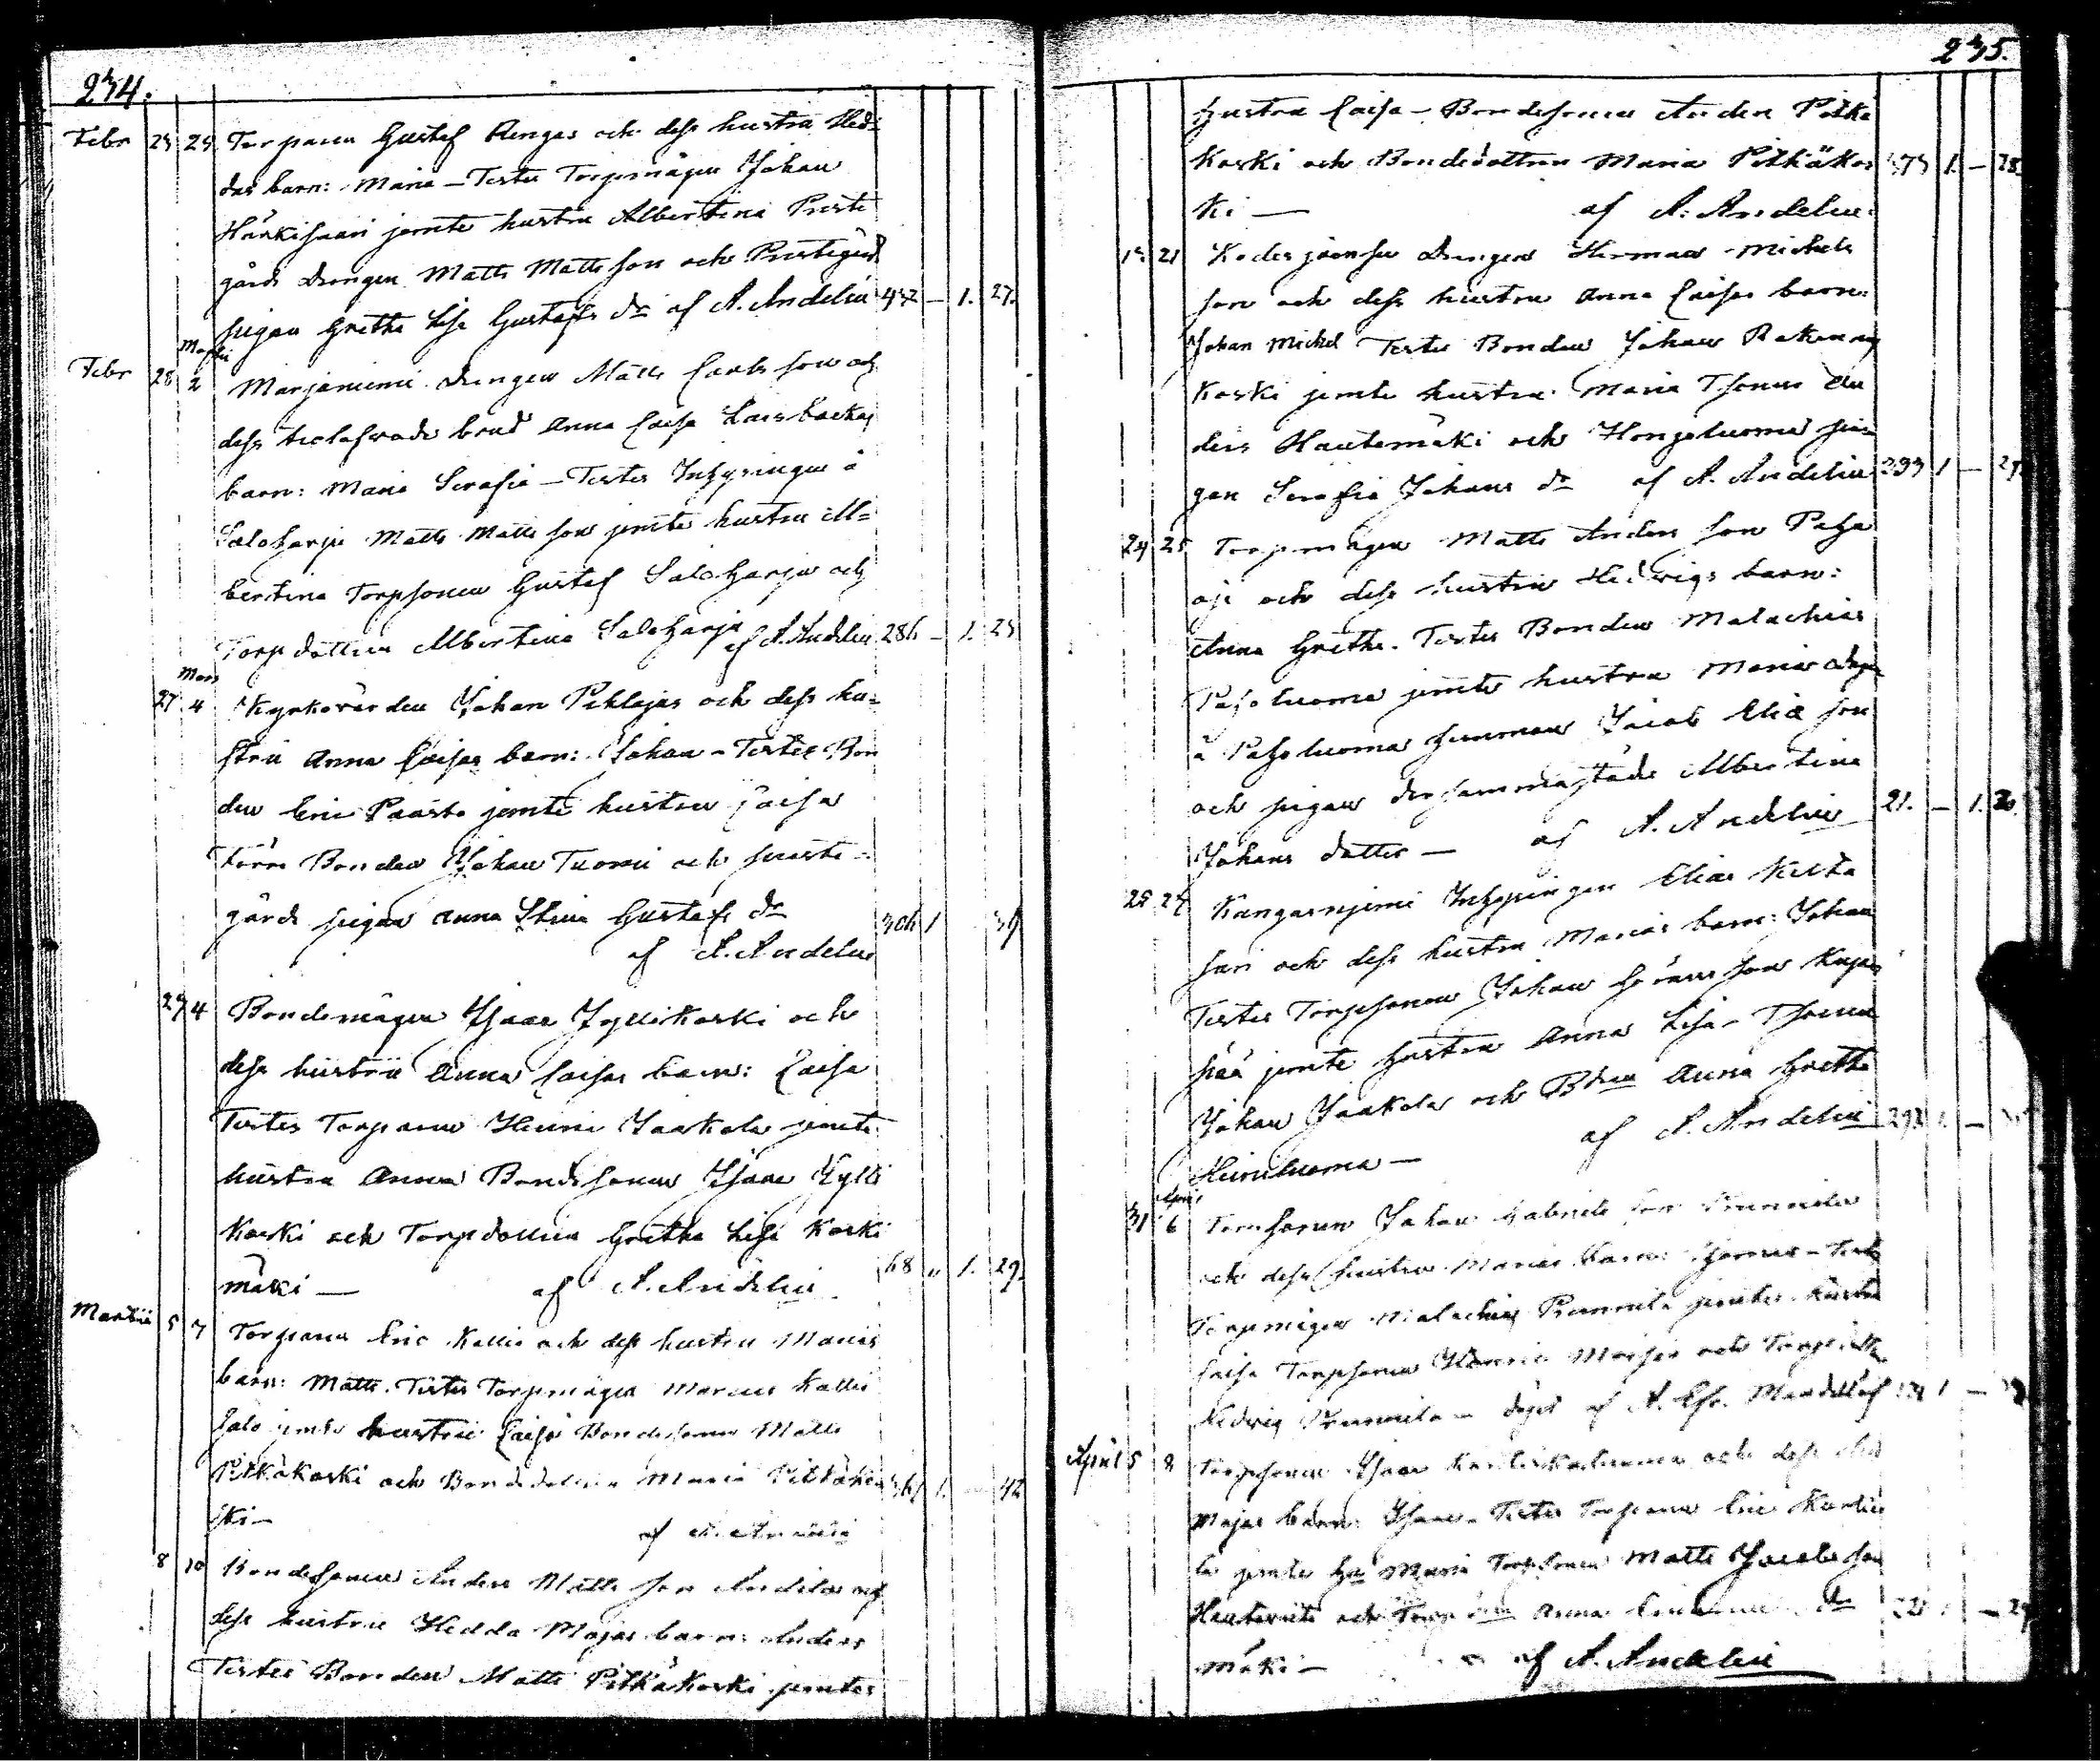 234.
Febr 23 24 Torparen Gustaf Rengas och dess hustru Hed-
das barn: Maria – Testes Torpmågen Johan
Härkisaari jemte hustru Albertina Preste
gårds drengen Matts Mattsson och Prestegårds
pigan Gretha Lisa Gustafs dr af A. Andelin 42 – 1. 27.
Martii
Febr 28 2 Marjaniemi drengen Matts Carlsson och
dess trolofwade brud Anna Caisa Larsbackas
barn: Maria Serafia – Testes Inhysingen å
Saloharju Matts Mattsson jemte hustru Al-
bertina Torpsonen Gustaf Saloharju och
Torpdottren Albertina Saloharju af A. Andelin 286 – 1. 25
Mars
27 4 Kyrkovärden Johan Pihlajas och dess hu-
stru Anna Caisas barn: Johan – Testes Bon
den Eric Paasto jemte hustru Caisa
Förre Bonden Johan Tuomi och preste-
gårds pigan Anna Stina Gustafs dr
af A. Andelin 306 1 39
29 4 Bondemågen Isaac Jyllikoski och
dess hustru Anna Caisas barn: Caisa
Testes Torparen Henric Jaakola jemte
hustru Anna Bondsonen Isaac Jylli
koski och Torpdottren Gretha Lisa Koski
mäki — af A. Andelin 68 " 1. 29.
Martii 5 7 Torparen Eric Kallio och dess hustru Marias
barn: Matts. Testes Torpmågen Marcus Kallio
salo jemte hustru Caisa Bondesonen Matts
Pitkäkoski och Bondedottren Maria Pitkäkos
ki – af A. Andelin 1. 42
8 10 Bondesonen Anders Mattsson Andila och
dess hustru Hedda Majas barn: Anders
Testes Bonden Matts Pitkäkoski jemte
235.
hustru Caisa – Bondesonen Anders Pitkä
koski och Bondedottren Maria Pitkäkos 373 1. – 28.
ki — af A. Andelin.
19 21 Koderjoensu drengen Herman Michels
son och dess hustru Anna Caisas barn:
Johan Michel Testes Bonden Johan
koski jemte hustru Maria Tsonen An
ders Hautamäki och Hongoluoma pi
gan Serafia Johans dr af A. Andelin 293 1 – 27
24 25 Torpmågen Matts Andersson Paha
oja och dess hustru Hedvigs barn:
Anna Gretha. Testes Bonden Malachias
Pajuluoma jemte hustru Maria
å Pajuluoma hemman Jacob Eliæ son
och pigan dersammastäde Albertina
Johans dotter — af A. Andelin 21. – 1. 30.
25 27 Kangasniemi Inhysingen Elias Kulta
sari och dess hustru Marias barn: Johan
Testes Torpsonen Johan Göransson Kujan
pää jemte hustru Anna Lisa – Tsonen
Johan Jaakola och Bdren Anna Gretha
Heiniluoma — af A. Andelin 292 1. –
April
31 6 Torpsonen Johan Gabrielsson Runnila
och dess hustru Marias barn: – Testes
Torpmågen Malachias Runnila jemte hustru
Caisa Torpsonen Henric och Torpdottren
Hedvig Runnila – döpt af A. Efr. Mandellöf 1 –
April 5 8 Torpsonen Isaac och dess hustru
Majas barn: Isaac – Testes Torparen Eric
la jemte hu Maria Torpsonen Matts Jacobsson
och Torp Anna
mäki – af A. Andelin